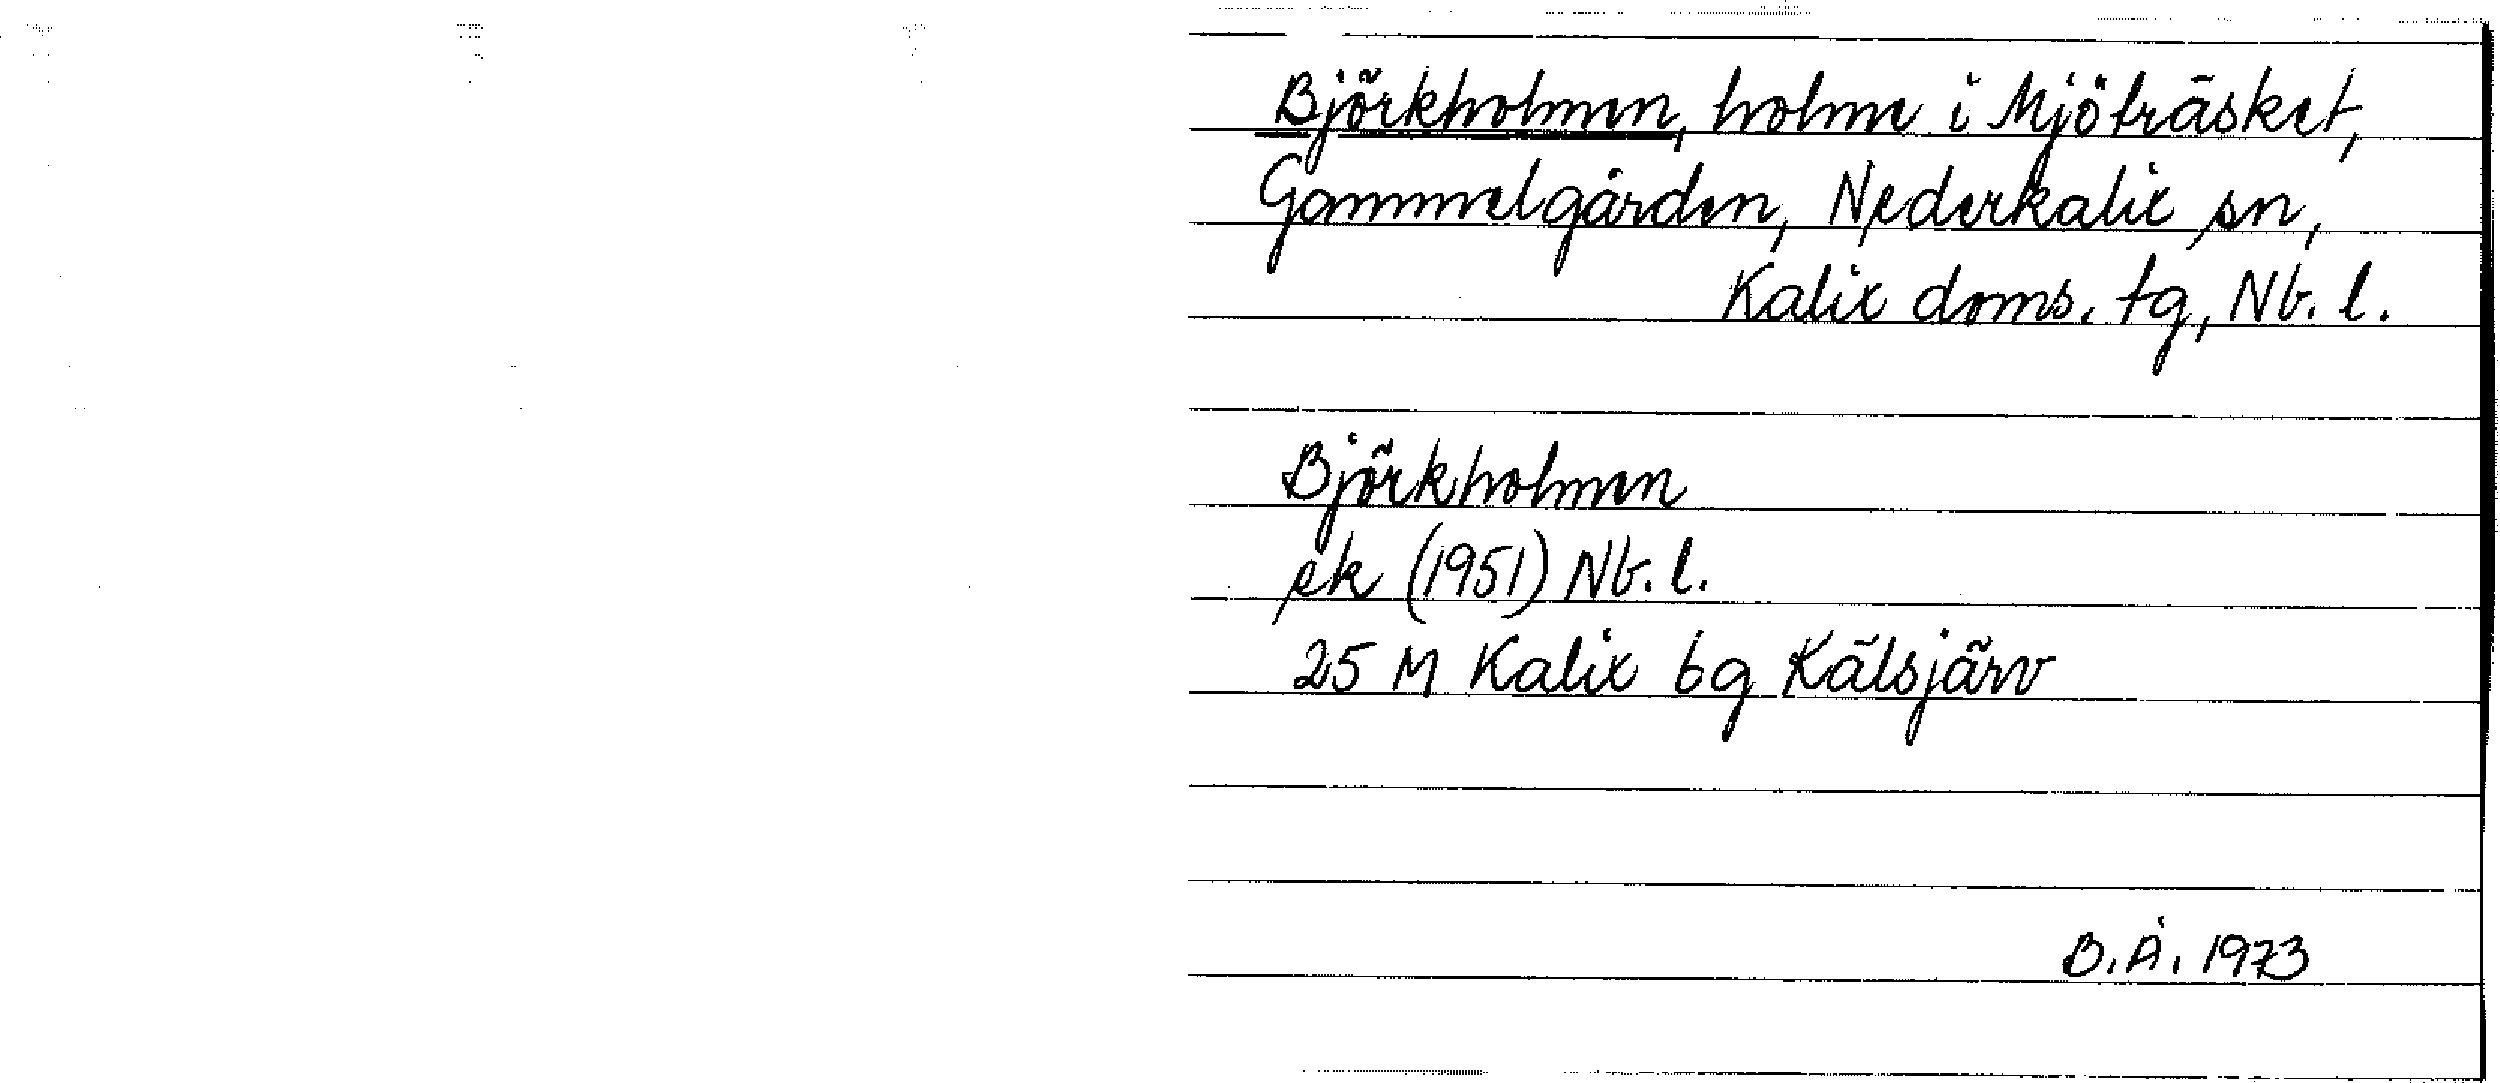 Björkholmen, holme i Mjöträsket,
Gammelgården, Nederkalix sn,
Kalix doms. tg, Nb. l.
Björkholmen
ek (1951) Nb. l.
25 M Kalix bg Kälsjärv
B. Å. 1973